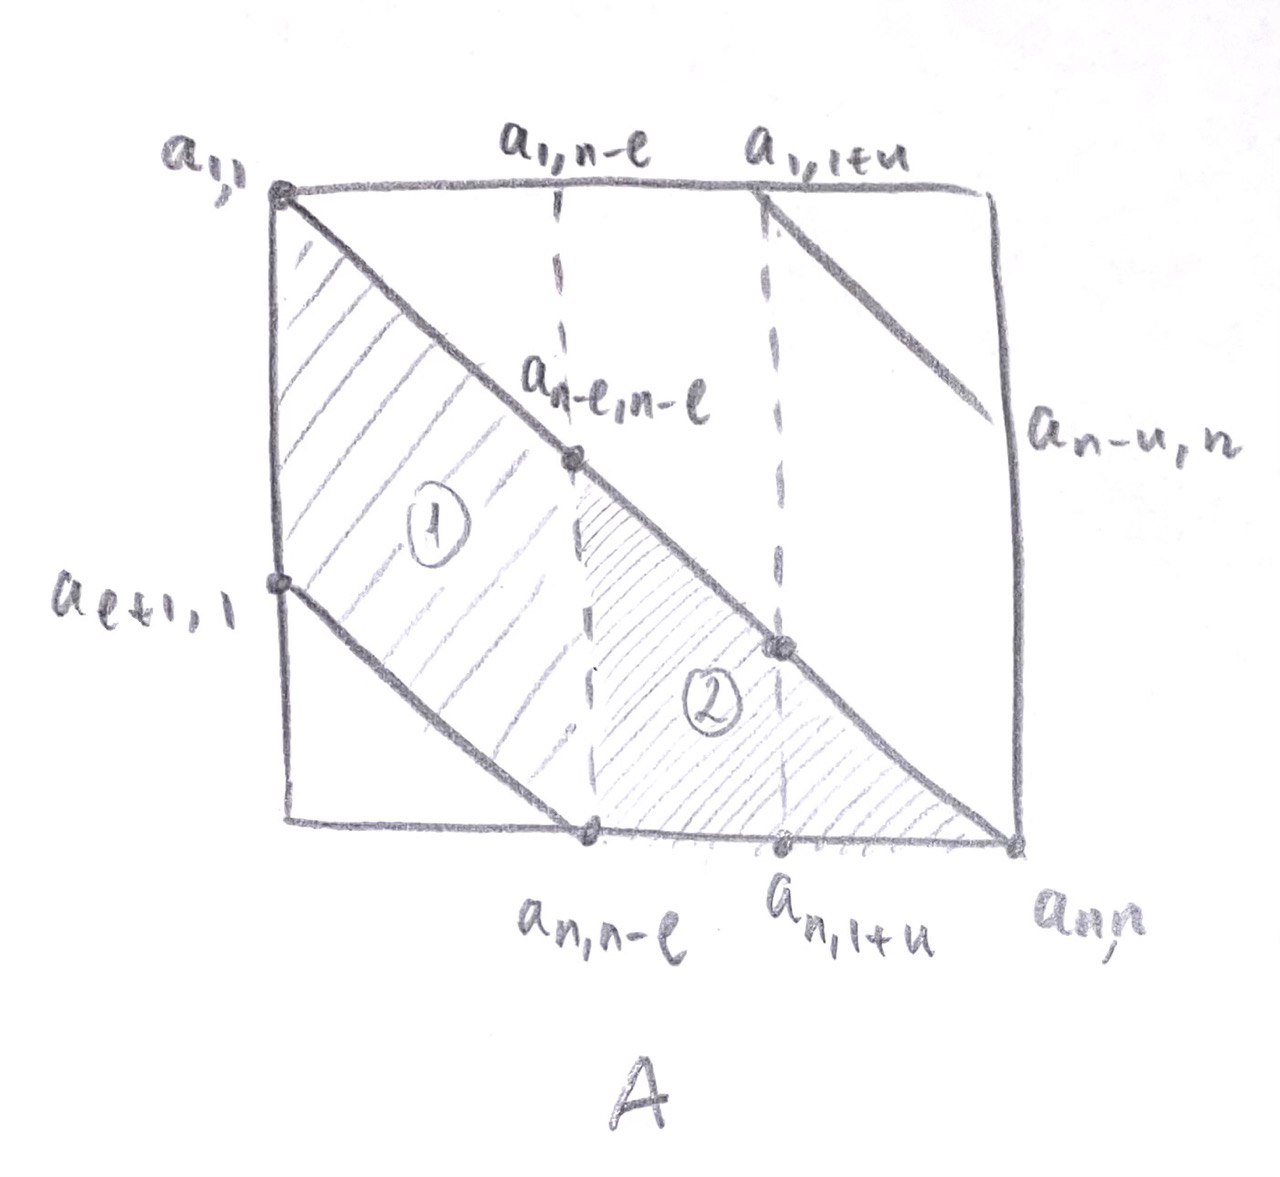 a₁,₁ a₁,n-ℓ a₁,₁+u
an-ℓ,n-ℓ
an-u,n
①
aℓ+1,1
②
an,n-ℓ an,1+u an,n
A